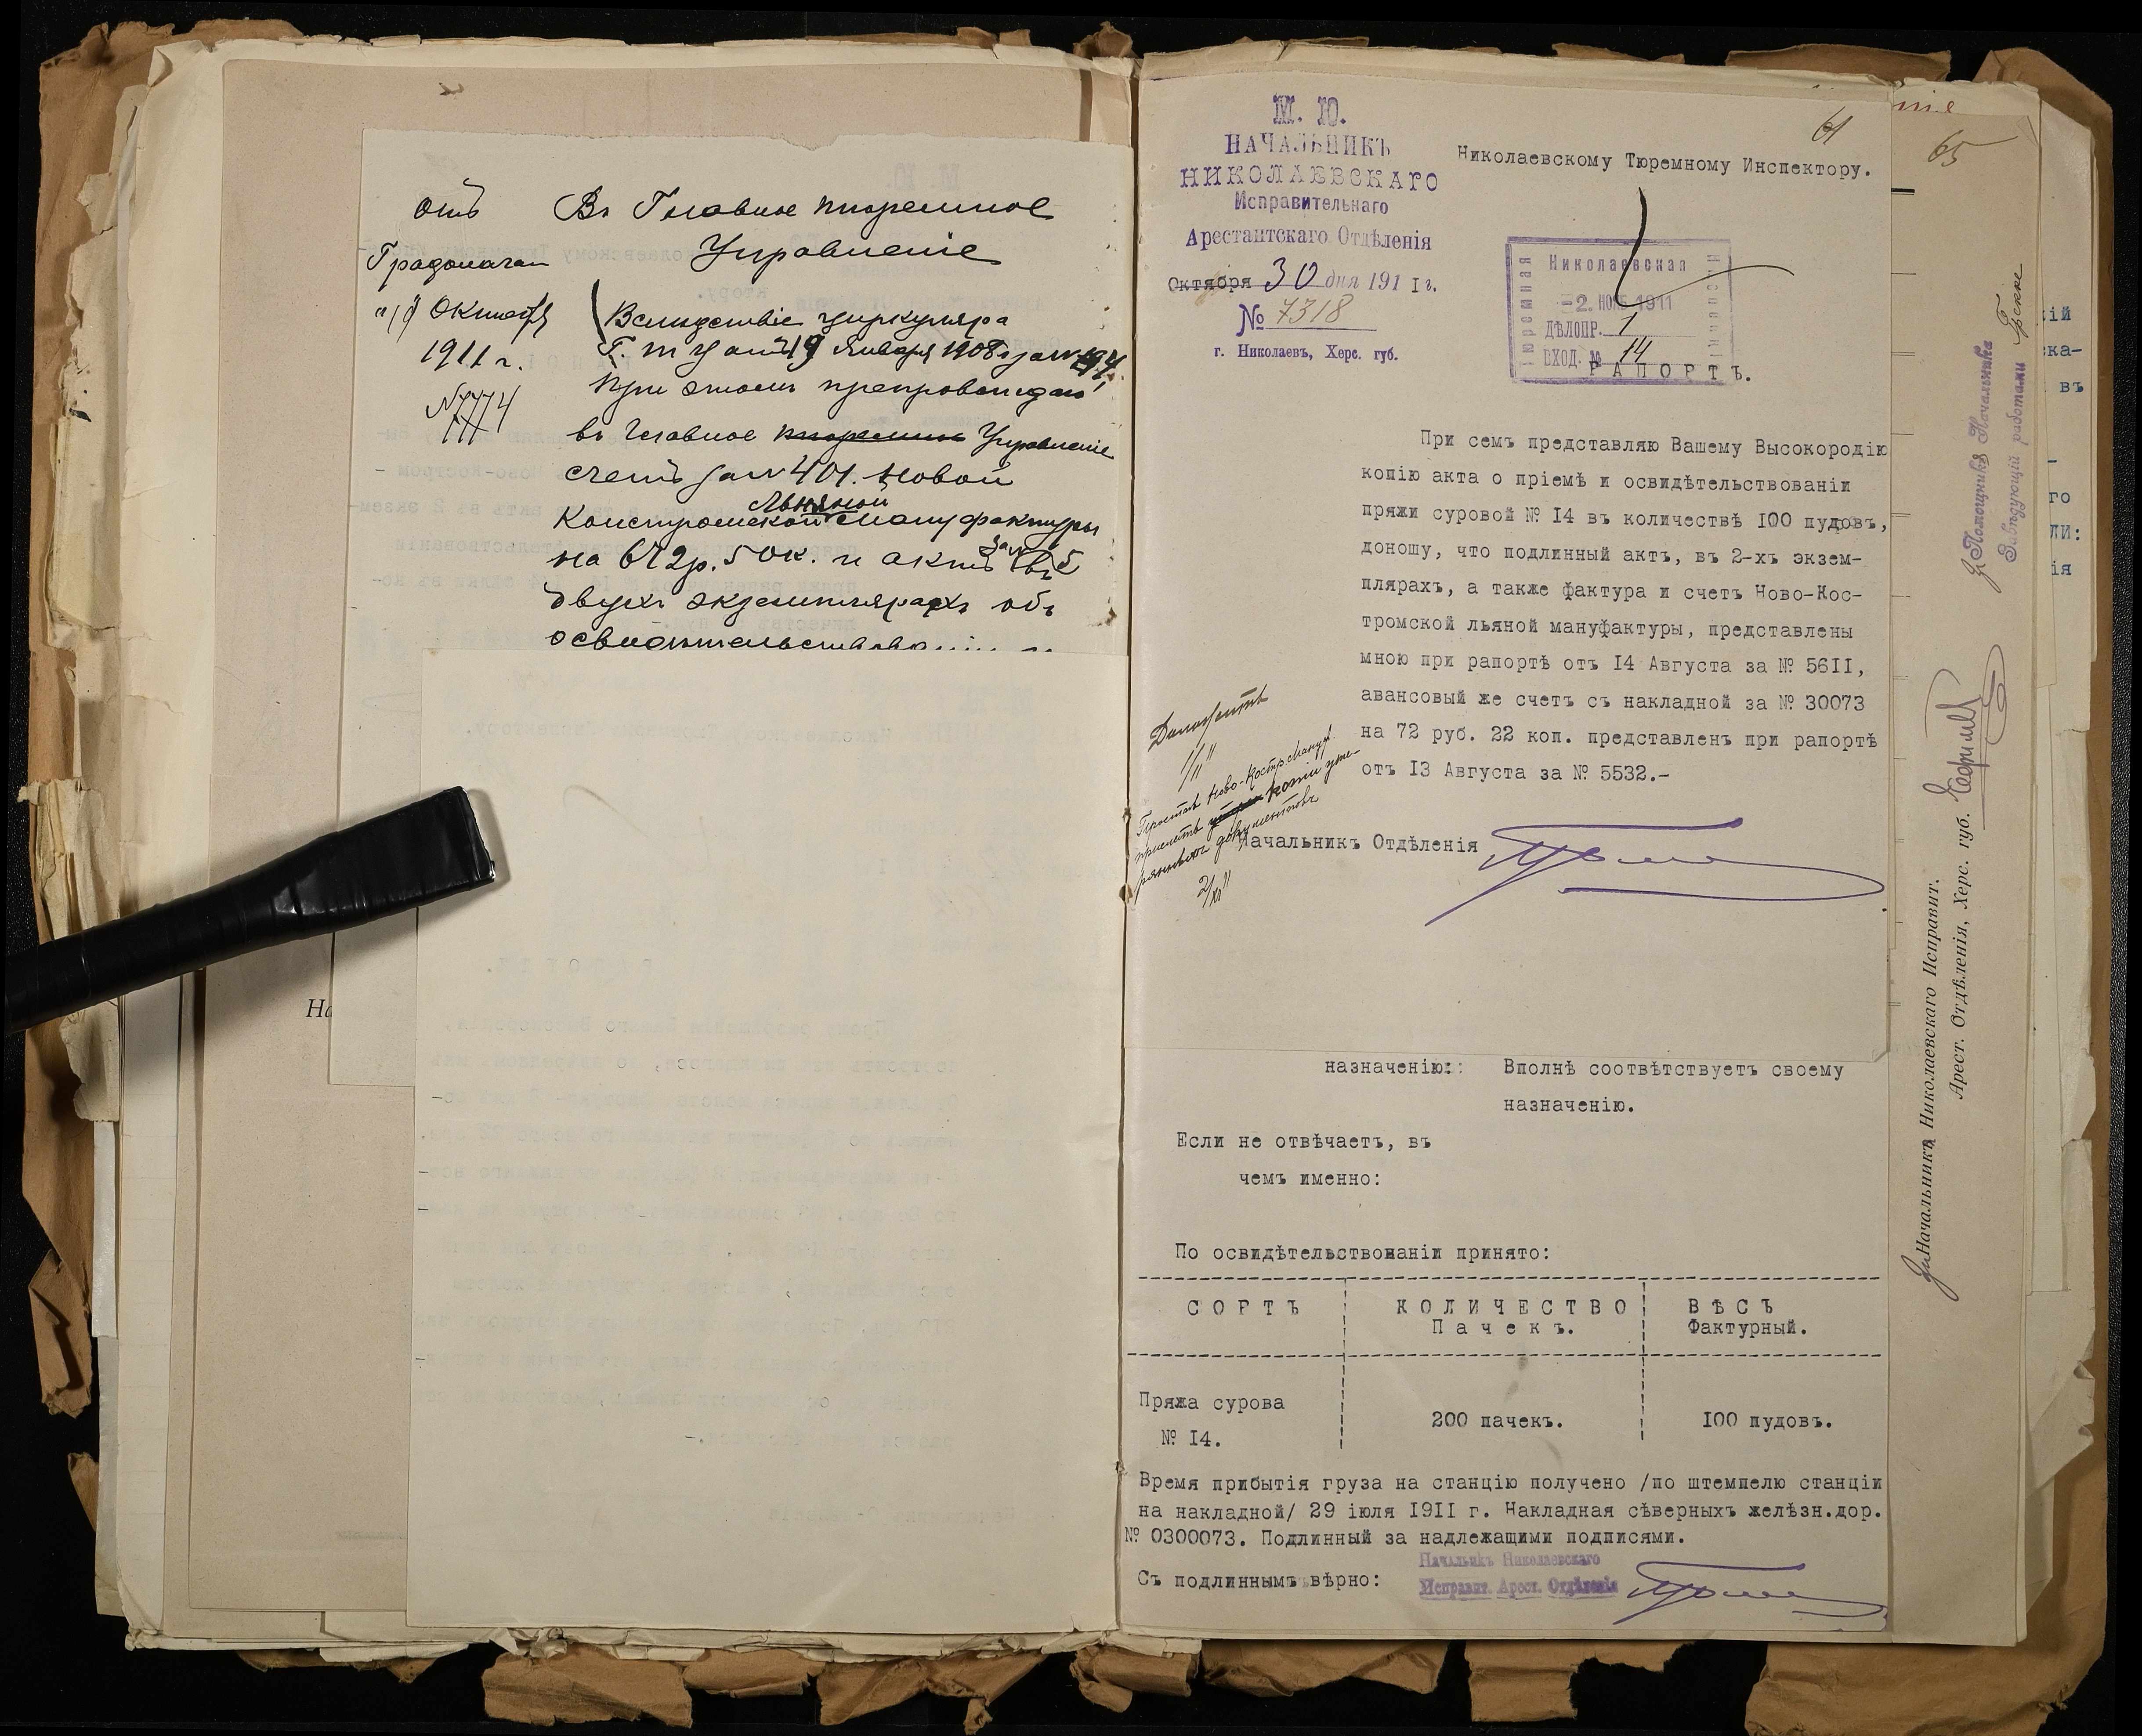 отъ
Градоначал
Октября
1911 г.
№ 7774
Въ Главное тюремное
Управленіе
Вслѣдствіе циркуляра
Г. Т. У. отъ 19 Января 1908 г за №
при этомъ препровождаю
въ Главное тюремное Управленіе
счетъ за № 401. Новой
Костромской Льняной мануфактуры
на 672 р. 50 к. и актъ за № въ
двухъ экземплярахъ объ
освидѣтельствованіи
На
М. Ю.
НАЧАЛЬНИКЪ
НИКОЛАЕВСКАГО
Исправительнаго
Арестантскаго Отдѣленія
Октября 30 дня 1911 г.
№ 7318
г. Николаевъ, Херс. губ.
61
Николаевскому Тюремному Инспектору.
Николаевская
Тюремная
Инспекція
-2. НОЯБ 1911
ДѢЛОПР. 1
ВХОД. № 14
РАПОРТЪ.
При семъ представляю Вашему Высокородію
копію акта о пріемѣ и освидѣтельствованіи
пряжи суровой № I4 въ количествѣ I00 пудовъ,
доношу, что подлинный актъ, въ 2-хъ экзем-
плярахъ, а также фактура и счетъ Ново-Кос-
тромской льяной мануфактуры, представлены
мною при рапортѣ отъ I4 Августа за № 56II,
авансовый же счетъ съ накладной за № 30073
на 72 руб. 22 коп. представленъ при рапортѣ
отъ I3 Августа за № 5532.-
Доложить
Просить Ново-Костр. Мануф.
прислать копіи уте-
рянныхъ документовъ
2/XI
Начальникъ Отдѣленія
назначенію: Вполнѣ соотвѣтствуетъ своему
назначенію.
Если не отвѣчаетъ, въ
чемъ именно:
По освидѣтельствованіи принято:
СОРТЪ КОЛИЧЕСТВО ВѢСЪ
Пачекъ. Фактурный.
Пряжа сурова
№ I4. 200 пачекъ. I00 пудовъ.
Время прибытія груза на станцію получено /по штемпелю станціи
на накладной/ 29 іюля I9II г. Накладная сѣверныхъ желѣзн.дор.
№ 0300073. Подлинный за надлежащими подписями.
Съ подлиннымъ вѣрно:
Начальникъ Николаевскаго
Исправит. Арест. Отдѣленія
65
Начальникъ Николаевскаго Исправит.
Арест. Отдѣленія, Херс. губ.
Помощникъ Начальника
Завѣдующій работами
ій
ка-
въ
го
ЛИ:
ія